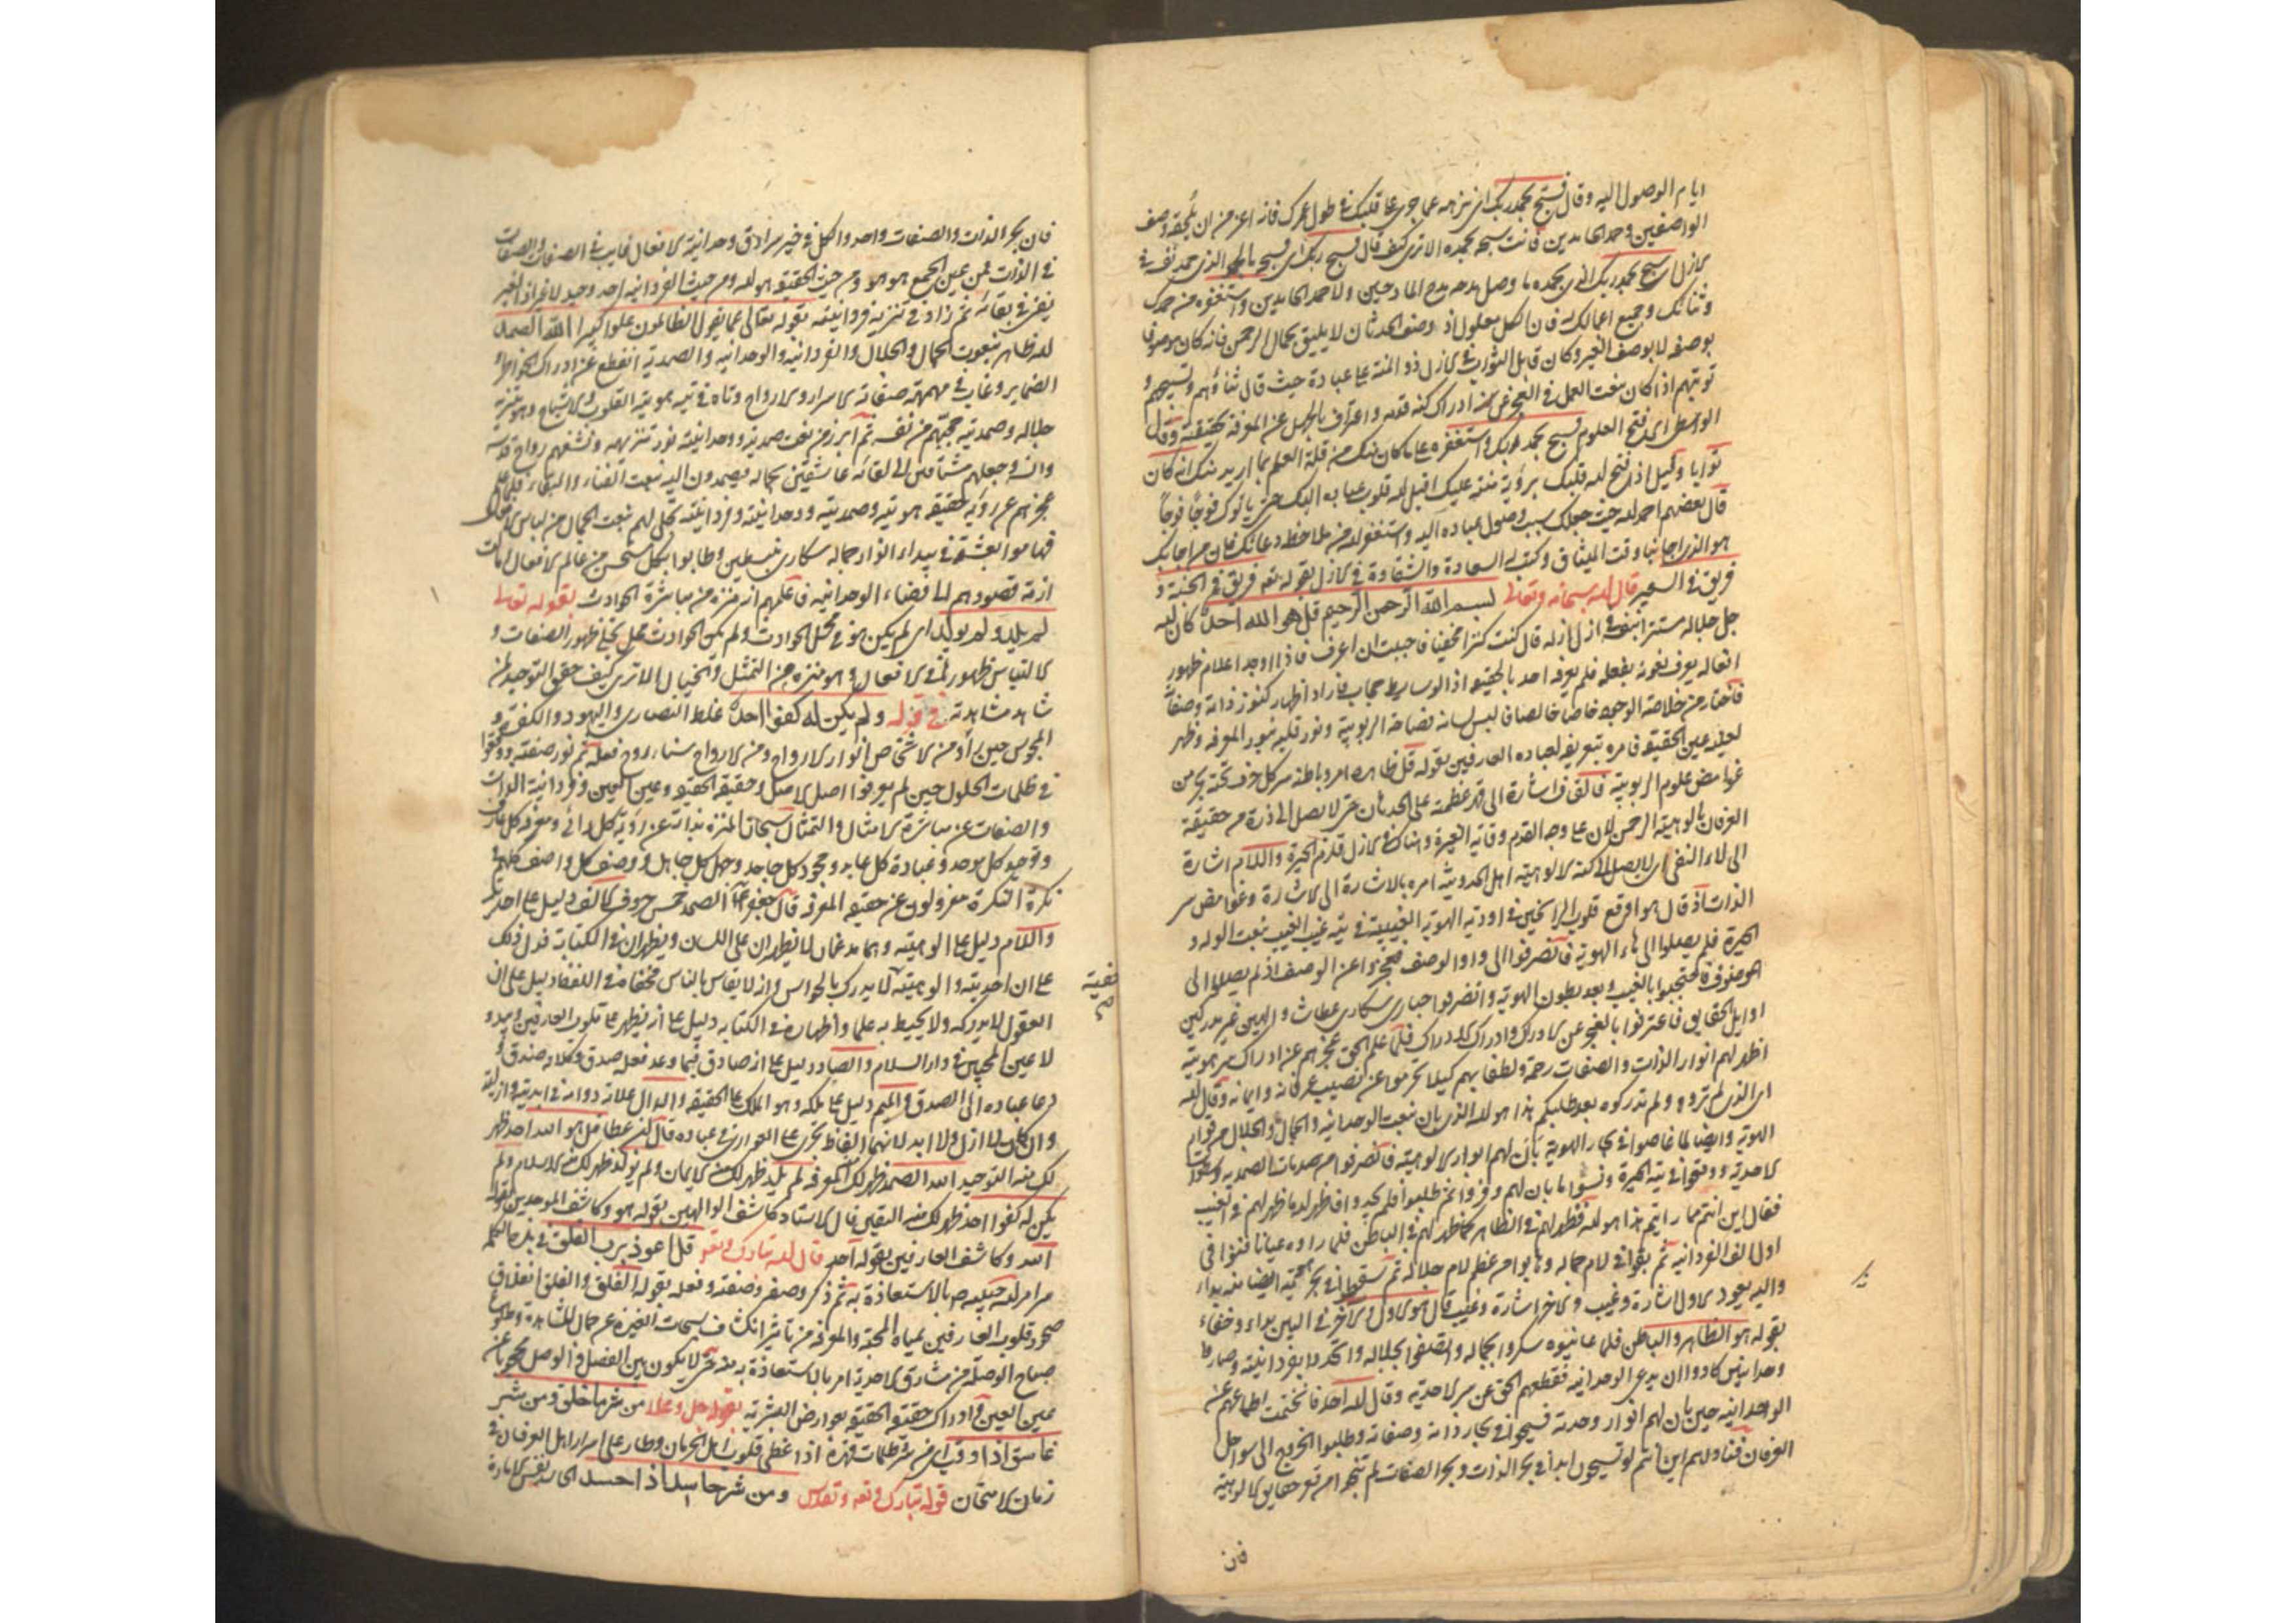 ايام الوصول اليه وقال فسبح بحمد ربك اى نزهه عما جرى على قلبك فى طول عمرك فانه اعز من ان يلحقه وصف
الواصفين وحمد الحامدين فانت سبحه بحمده الا ترى كيف قال فسبح ربك اى فسبحه بالحمد الذى حمد نفسه فى
الازل اى سبح بحمد ربك الذى بحمده ما وصل مدحه مدح المادحين ولا حمد الحامدين واستغفره من حمدك
وثنائك وجميع اعمالك له فان الكل معلول اذ وصف الحدثان لا يليق بجمال الرحمن فانه كان موصوفا
بوصفه لا بوصف الغير وكان قابل التوب فى الازل ذو المنة على عباده حيث قال ثناؤهم وتسبيحهم و
توبتهم اذا كان بنعت العجز عن ادراك كنه قدمه واعتراف بالجهل عن المعرفة بحقيقته وقال
الواسطى اى فتح العلوم فسبح بحمد ربك واستغفره على ما كان منك من قلة العلم بما اريد منك انه كان
توابا وقيل اذا فتح لله قلبك برؤية منته عليك اقبل لله قلوب عباده اليك حتى ياتوك فوجا فوجا
قال بعضهم احمد لله حيث جعلك سبب وصول عباده اليه واستغفر له من ملاحظة دعائك فان من اجابك
هو الذى اجابنا وقت الميثاق وكتب له السعادة والشقاوة فى الازل بقوله تعه فريق فى الجنة و
فريق فى السعير قال لله سبحانه وتعالى بسم الله الرحمن الرحيم قل هو الله احد كان لله
جل جلاله مستترا بنفسه فى ازل ازله قال كنت كنزا مخفيا فاحببت ان اعرف فاذا اوجد اعلام ظهور
افعاله يعرف نعوته بفعله فلم يعرفه احد بالحقيقة اذ الوسايط حجاب فاراد اظهار كنوز ذاته وصفاته
فاختار من خلاصة الوجود خاصا خالصا فالبس لسانه فصاحة الربوبية ونور قلبه بنور المعرفة وظهر
لعينه عين الحقيقة فامره بتعريفه لعباده العارفين بقوله قل ظاهره امر وباطنه سر كل حرف تحته بحر من
غوامض علوم الربوبية فالقاف اشارة الى قهر عظمته على الحدثان حتى لا يصل الى ذرة من حقيقة
العرفان بالوهية الرحمن
الى لاء النفى اى لا يصل الى كنه الالوهية اهل الحدوثية امره بالاشارة الى الاشارة وغوامض سر
الذات اذ قال هو اوقع قلوب الراسخين فى اودية الهوية الغيبية فى تيه غيب الغيب بنعت الوله و
الحيرة فلم يصلوا الى هاء الهوية فانصرفوا الى واو الوصف فتحيروا عن الوصف اذ لم يصلوا الى
الموصوف فاحتجبوا بالغيب وبعد بطون الهوية وانصرفوا حيارى سكارى عطاشا والهين غير مدركين
اوايل الحقايق فاعترفوا بالعجز عن الادراك وادراك الادراك فلما علم الحق عجزهم عن ادراك سر هويته
اظهر لهم انوار الذات والصفات رحمة ولطفا بهم كيلا يحرموا عن نصيب عرفانه وايمانه وقال الله
اى الذى لم تروه ولم تدركوه بعد طلبكم هذا هو لله الذى بان بنعت الوحدانية والجمال والجلال
الهوية وايضا لما غاصوا فى بحار الهوية بان لهم انوار الالوهية فانصرفوا من صدمات الصمدية وسطوات
الاحدية ووقعوا فى تيه الحيرة ونسوا ما بان لهم وفزعوا ثم طلبوا فلم يجدوا فاظهر لله ما ظهر لهم فى الغيب
فقال اين انتم مما رايتم هذا هو لله فظهر لهم فى الظاهر كما ظهر لهم فى الباطن فلما راوه عيانا فنوا فى
اول الف الفردانية ثم بقوا فى لام جماله وهابوا من عظم لام جلاله ثم سقطوا فى بحر محبته ايضا منه بداء
واليه يعود الاول اشارة وغيب والاخر اشارة وغيب قال هو الاول والاخر فى البين بداء وخفاء
بقوله هو الظاهر والباطن فلما عاينوه سكروا بجماله واتصفوا بجلاله واتحدوا بفردانيته وصاروا
وحدانيين كادوا ان يدعى الوحدانية فقطعهم الحق عن سر الاحدية وقال لله احد فانختمت اطماعهم عن
الوحدانية حين بان لهم انوار وحدته فسبحوا فى بحار ذاته وصفاته وطلبوا الخروج الى سواحل
العرفان فناداهم اين انتم لو تسبحون ابدا فى بحر الذات وبحر الصفات لم تبحروا من قعر حقايق الالوهية
فان
فان بحر الذات والصفات واحد والكل فى خير سرادق وحدانية الافعال غايب فى الصفات والصفات
فى الذات فمن عين الجمع هو هو ومن حيث الحقيقة هو لله ومن حيث الفردانية احد وحيد لانفراد الغير
يفنى فى بقائه ثم زاد فى تنزيه فردانيته بقوله تعالى عما يقول الظالمون علوا كبيرا الله الصمد
لله ظاهر بنعوت الجمال والجلال والفردانية والوحدانية والصمدية انقطع عن ادراكه الخواطر و
الضماير وغاب فى مهمهة صفاته الاسرار والارواح وتاه فى تيه هويته القلوب والاشباح وهو بتنزيه
جلاله وصمديته حجبهم من نفسه ثم ابرز من نعت صمديته ووحدانيته نور تنزيهه ونشقهم روايح قدسه
وانسه وجعلهم مشتاقين الى لقائه عاشقين بجماله فيصمدون اليه بنعت الفناء والبقاء فلما علم
عجزهم عن رؤية حقيقة هويته وصمديته ووحدانيته وفردانيته تجلى لهم بنعت الجمال من لباس الافعال
فهاموا بعشقه فى بيداء انوار جماله سكارى منبسطين وطابوا بكل مستحسن من عالم الافعال
ازمة قصودهم الى فضاء الوحدانية فاعلمهم انه منزه من مباشرة الحوادث بقوله تعالى
لم يلد ولم يولد اى لم يكن هو فى محل الحوادث ولم يكن الحوادث محل تجلى ظهور الصفات و
الالتباس ظهور الذى فى الافعال وهو منزه عن التمثل والخيال الا ترى كيف حقق التوحيد لمن
شاهد مشاهدته فى قوله ولم يكن له كفوا احد غلط النصارى واليهود والكفرة و
المجوس حين راوه من الاشخاص انوار الارواح ومن الارواح سناء روح فعله ثم نور صفته ووقعوا
فى ظلمات الحلول حين لم يعرفوا اصل الاصل وحقيقة الحقيقة وعين العين وفردانية الذات
والصفات عن مباشرة الامثال والتمثال سبحان المنزه بذاته عن رؤية كل رائى ومعرفة كل عارف
وتوحيد كل موحد وعبادة كل عابد وجحود كل جاحد وجهل كل جاهل ووصف كل واصف كلهم فى
نكرة النكرة معزولون عن حقيقة المعرفة قال جعفر عم الصمد خمس حروف فالالف دليل على احديته
واللام دليل على الوهيته وهما مدغمان لا يظهران على اللسان ويظهران فى الكتابة فدل ذلك
على ان احديته والوهيته خفية لا يدرك بالحواس وانه لا يقاس بالناس فخفاؤه فى اللفظ دليل على ان
العقول لا يدركه ولا يحيط به علما واظهاره فى الكتابة دليل على انه يظهر على قلوب العارفين ويبدو
لاعين المحبين فى دار السلام والصاد دليل على انه صادق فيما وعد فعله صدق وكلامه صدق و
دعا عباده الى الصدق والميم دليل على ملكه وهو الملك على الحقيقة والدال علامة دوامه فى ابديته وازليته
وان كان لا ازل ولا ابد لانهما الفاظ تجرى على العوارى فى عباده قال ابن عطا قل هو الله احد ظهر
لك منه التوحيد الله الصمد ظهر لك المعرفة لم يلد ظهر لك منه الايمان ولم يولد ظهر لك منه الاسلام ولم
يكن له كفوا احد ظهر لك منه اليقين قال الاستاد كاشف الوالهين بقوله هو وكاشف الموحدين بقوله
الله وكاشف العارفين بقوله احد قال لله تبارك وتعه قل اعوذ برب الفلق
مر امر لله حبيبه ص بالاستعاذة به ثم ذكر وصفه وصفته وفعله بقوله الفلق والفلق انفلاق
صخور قلوب العارفين بمياه المحبة والمعرفة من تاثير انكشاف سبحات العزة عن جمال المشاهدة وطلوع
صباح الوصلة من مشارق الاحدية امر بالاستعاذة به منه حتى لا يكون بين الفصل والوصل محجوبا عن
عين العين وادراك حقيقة الحقيقة بعوارض البشرية بقوله جل وعلا من شر ما خلق ومن شر
غاسق اذا وقب اى من شر ظلمات قهره اذا غطى قلوب اهل الحرمان وطار على اسرار اهل العرفان فى
زمان الامتحان قوله تبارك وتعه وتقدس ومن شر حاسد اذا حسد اى النفس الامارة